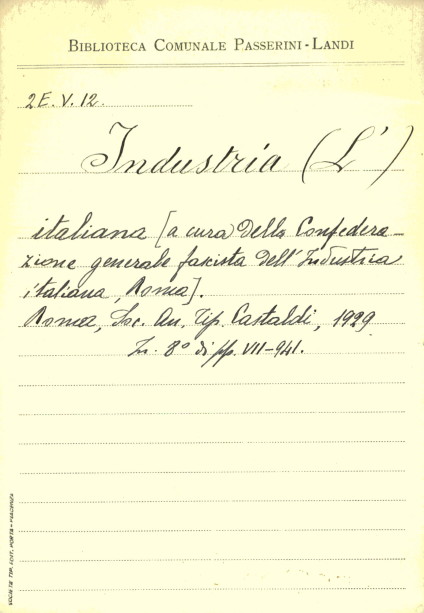 BIBLIOTECA COMUNALE PASSERINI-LANDI
2E.V.12.
Industria (L')
italiana [a cura della Confedera-
zione generale fascista dell'Industria
italiana, Roma].
Roma, Soc. An. Tip. Castaldi, 1929
In 8° di pp. VII-941.